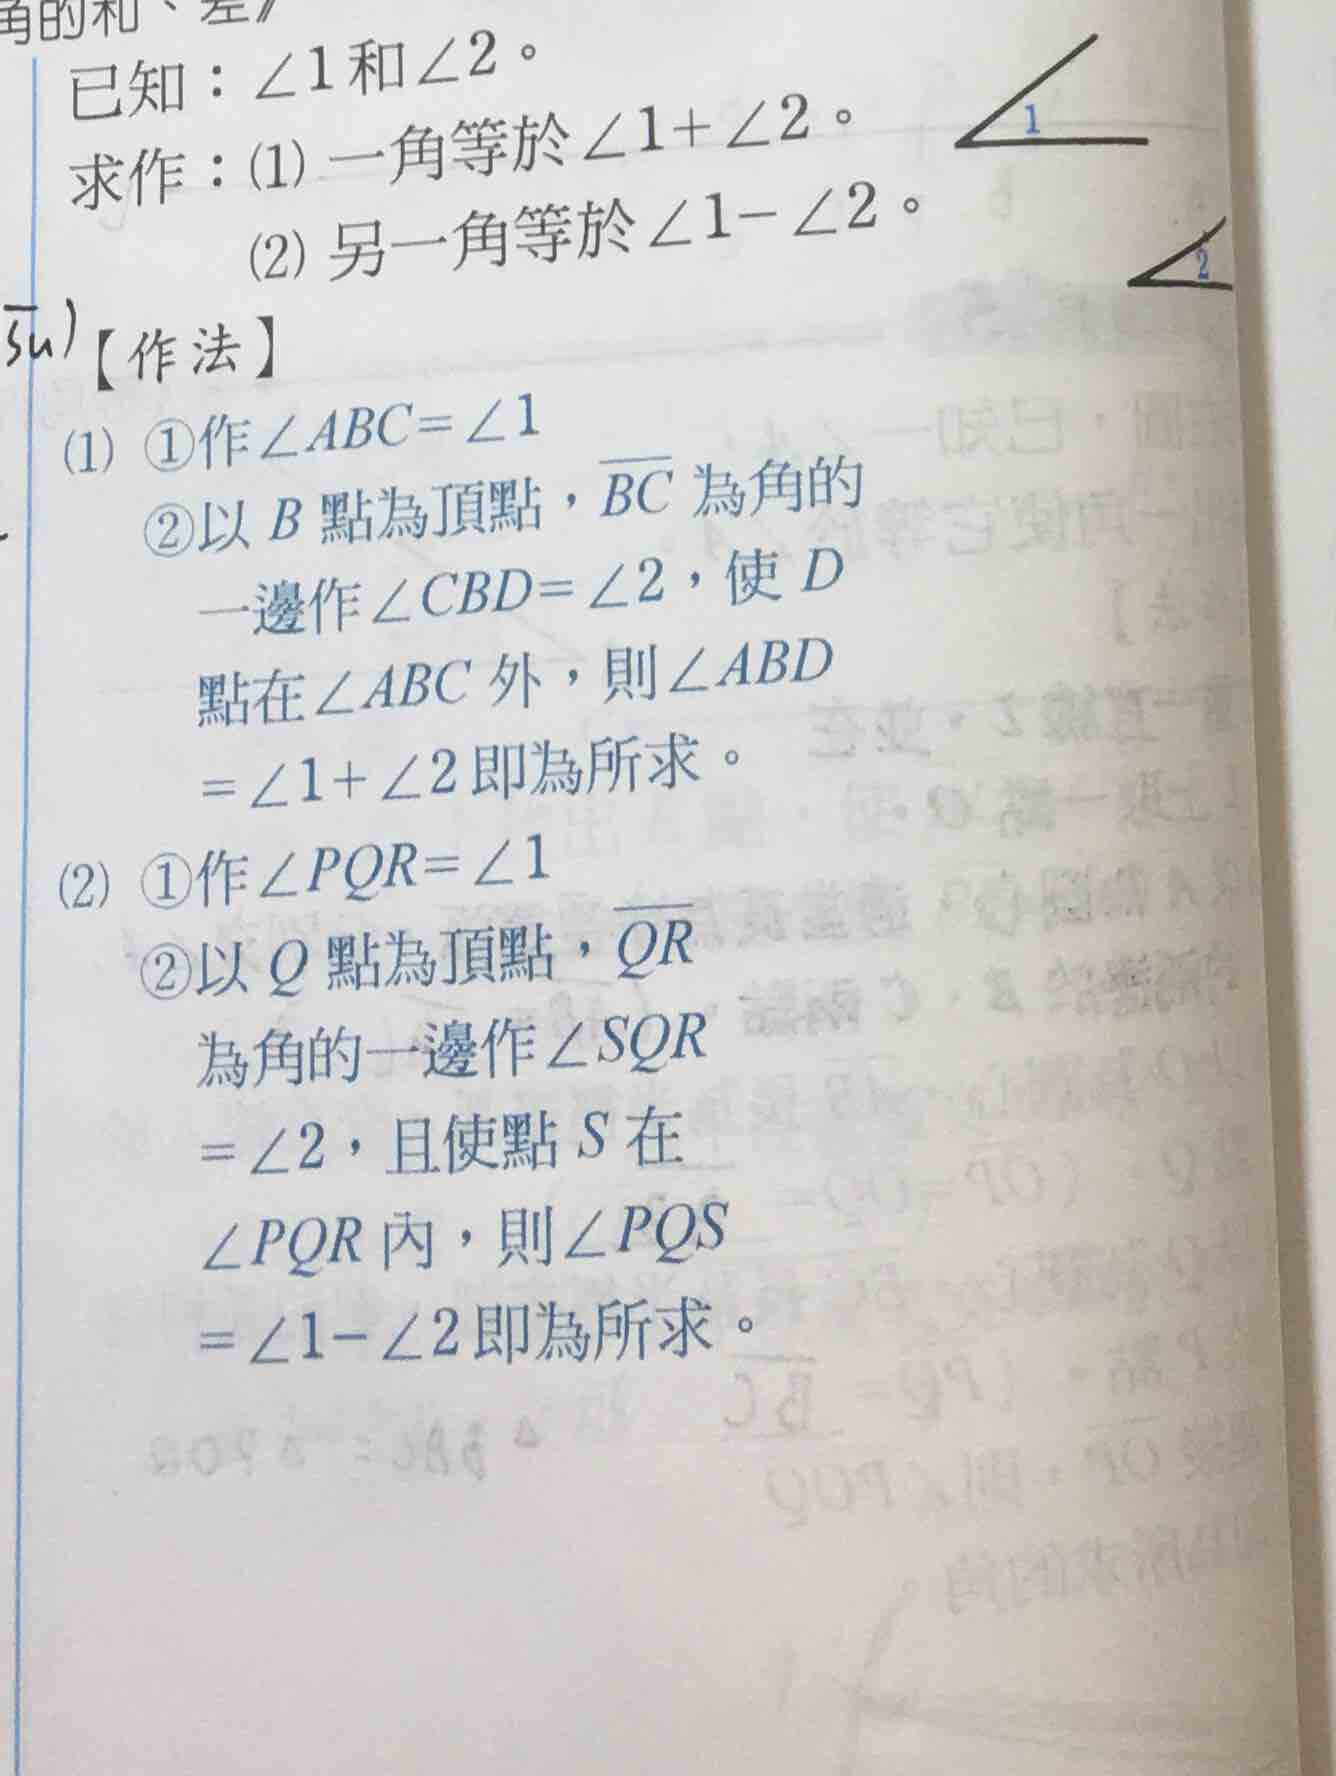 角的和、差》
已知：∠1和∠2。
求作：(1) 一角等於∠1+∠2。
(2) 另一角等於∠1-∠2。
1
2
【作法】
(1) ①作∠ABC=∠1
②以 B 點為頂點，\overline{BC} 為角的
一邊作∠CBD=∠2，使 D
點在∠ABC 外，則∠ABD
=∠1+∠2即為所求。
(2) ①作∠PQR=∠1
②以 Q 點為頂點，\overline{QR}
為角的一邊作∠SQR
=∠2，且使點 S 在
∠PQR 內，則∠PQS
=∠1-∠2即為所求。